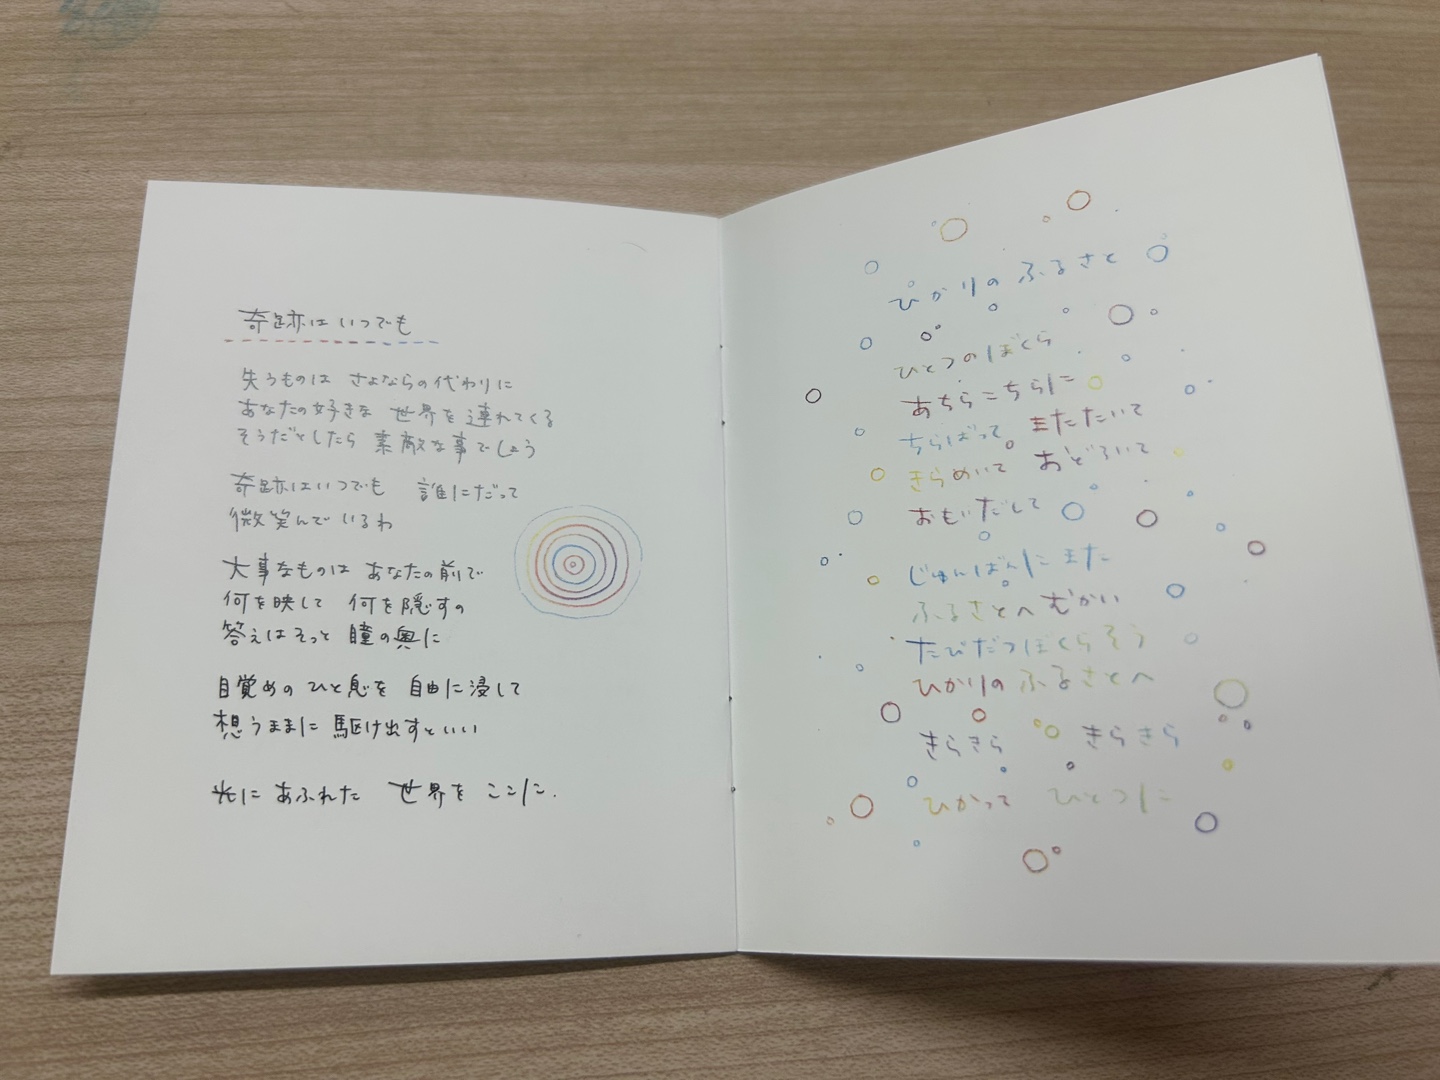 奇跡はいつでも
失うものは さよならの代わりに
あなたの好きな 世界を連れてくる
そうだとしたら 素敵な事でしょう
奇跡はいつでも 誰にだって
微笑んでいるわ
大事なものは あなたの前で
何を映して 何を隠すの
答えはそっと 瞳の奥に
目覚めの ひと息を 自由に浸して
想うままに 駆け出すといい
光に あふれた 世界を ここに.
ひかりの ふるさと
ひとつのぼくら
あちらこちらに
ちらばって またたいて
きらめいて おどろいて
おもいだして
じゅんばんに また
ふるさとへ むかい
たびだつぼくらそう
ひかりの ふるさとへ
きらきら きらきら
ひかって ひとつに